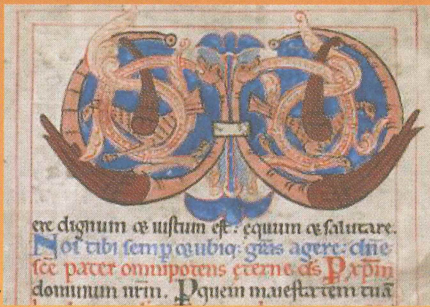 ere dignum & iustum est: equum & salutare.
Nos tibi semp & ubiq: gr̄as agere: dn̄e
sc̄e pater omnipotens eterne d̄s P xp̄m
dominum nr̄m. P quem maiestatem tuā